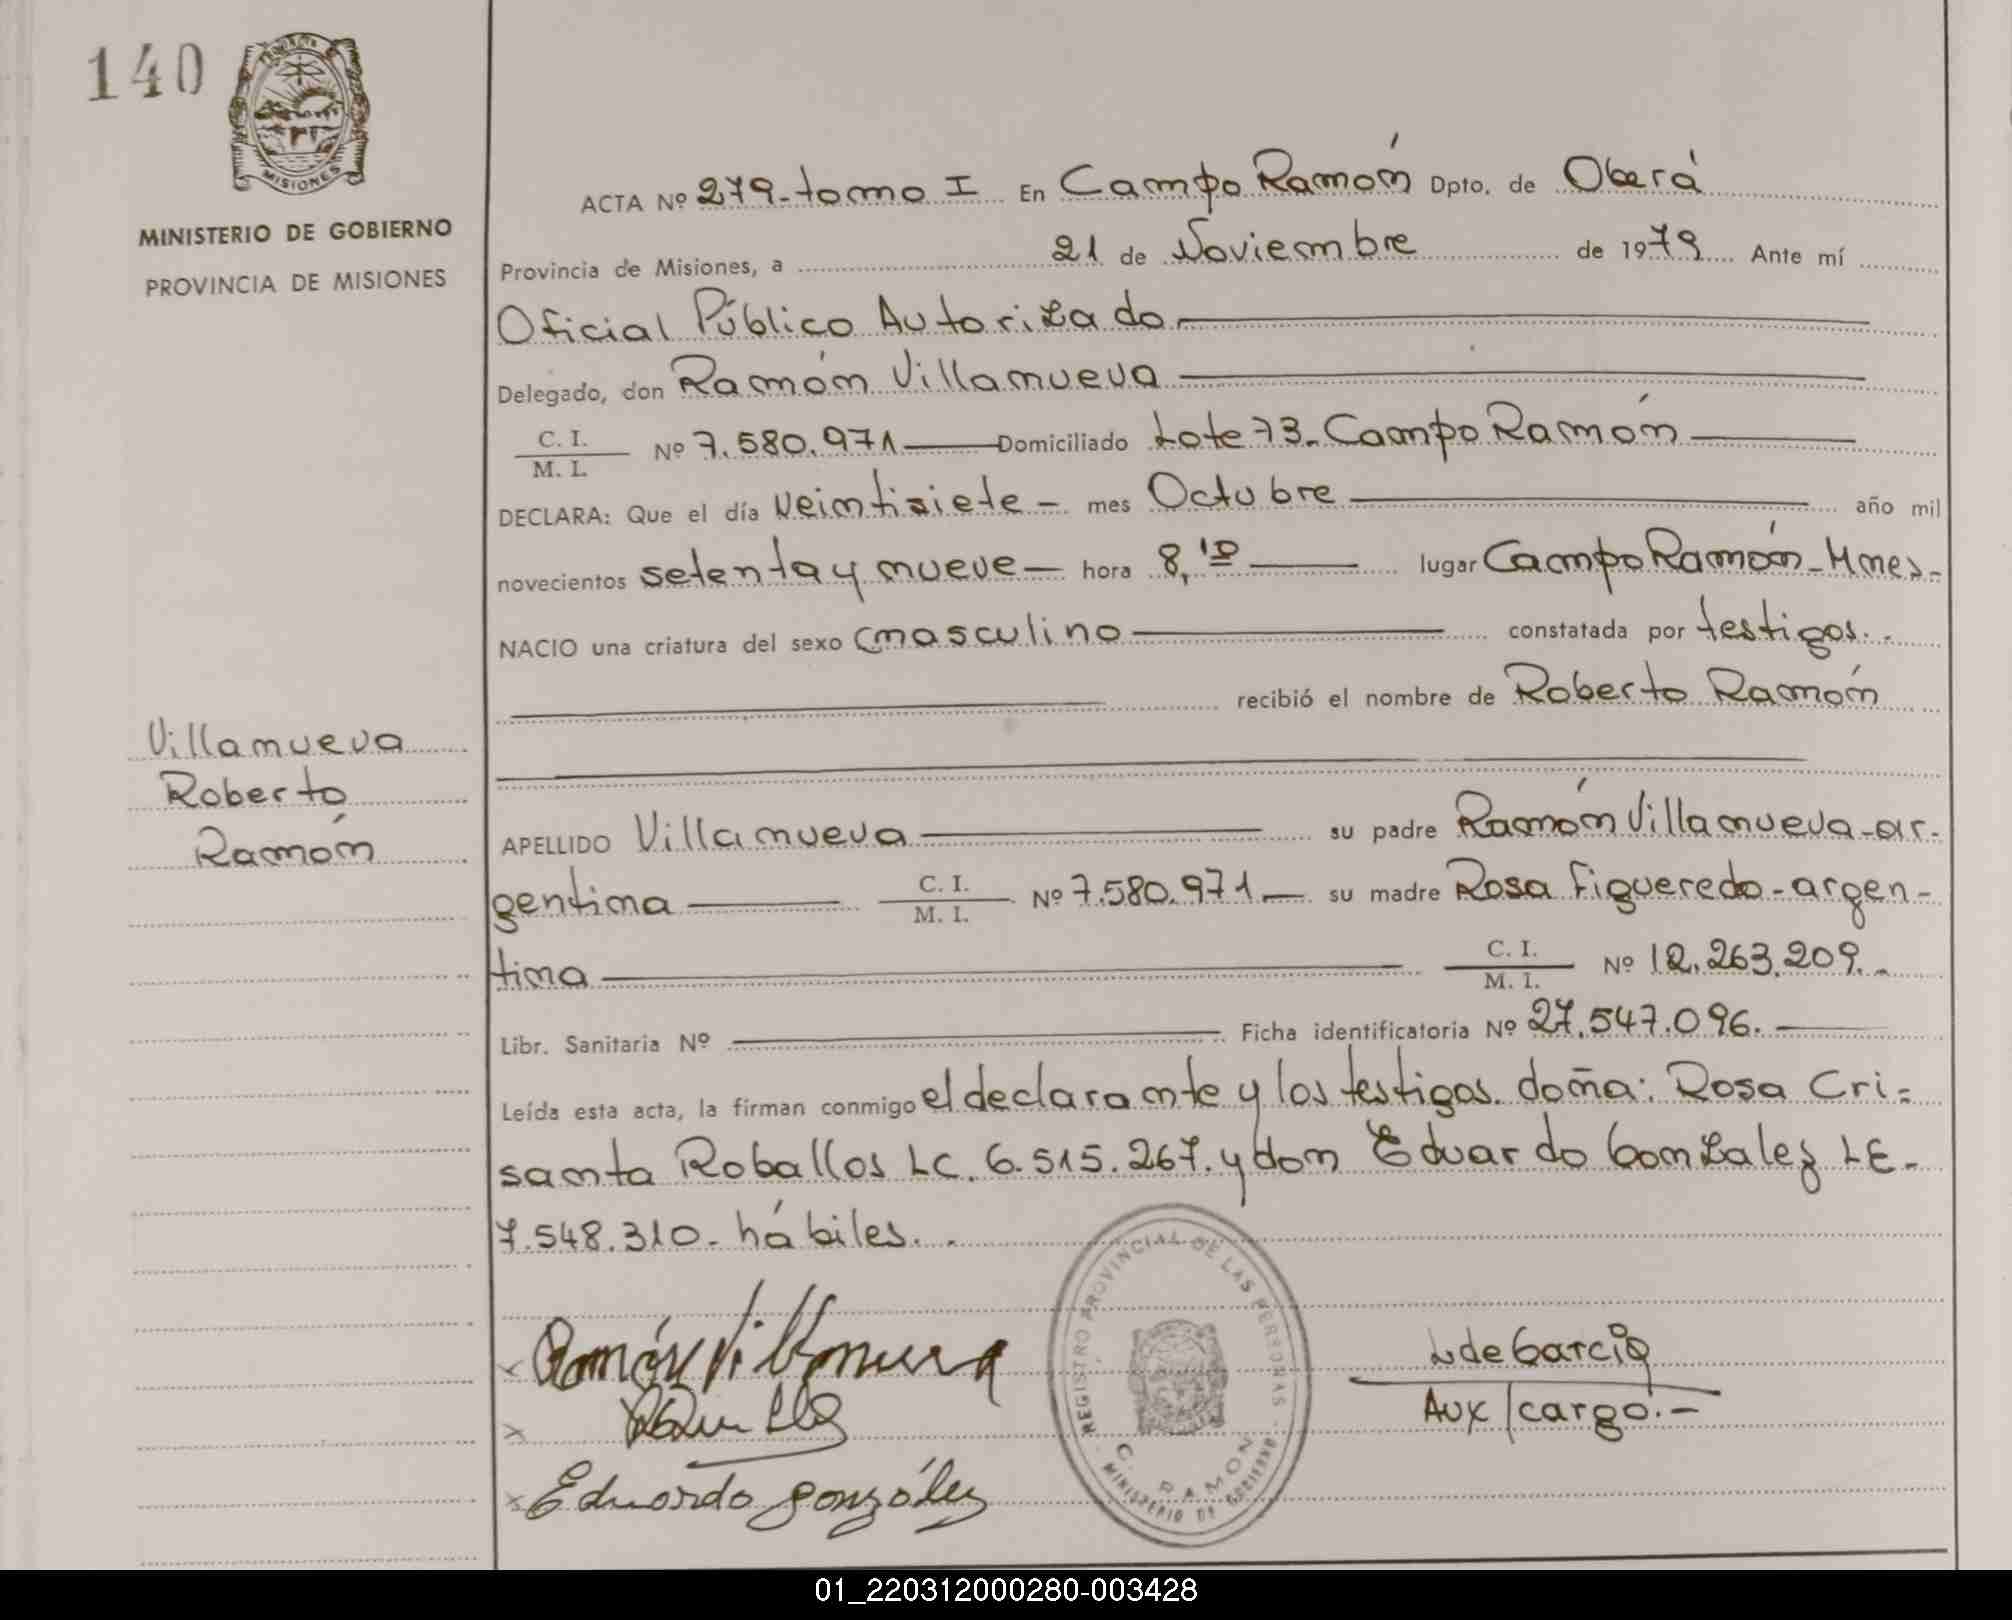 140
MISIONES
MINISTERIO DE GOBIERNO
PROVINCIA DE MISIONES
ACTA Nº 279-tomo I En Campo Ramón Dpto. de Oberá
Provincia de Misiones, a 21 de Noviembre de 1979 Ante mí
Oficial Público Autorizado
Delegado, don Ramón Villanueva
C. I. / M. I. Nº 7.580.971 Domiciliado Lote 73-Campo Ramón
DECLARA: Que el día veintisiete - mes Octubre año mil
novecientos setenta y nueve - hora 8,10 lugar Campo Ramón-Mnes-
NACIO una criatura del sexo masculino constatada por testigos.-
recibió el nombre de Roberto Ramón
Villanueva
Roberto
Ramón
APELLIDO Villanueva su padre Ramón Villanueva-ar-
gentina C. I. / M. I. Nº 7.580.971 su madre Rosa Figueredo-argen-
tina C. I. / M. I. Nº 12.263.209.-
Libr. Sanitaria Nº Ficha identificatoria Nº 27.547.096.
Leída esta acta, la firman conmigo el declarante y los testigos. doña: Rosa Cri=
santa Roballos LC. 6.515.267. y don Eduardo Gonzalez LE-
7.548.310- hábiles..
Ramón Villanueva
Eduardo González
REGISTRO PROVINCIAL DE LAS PERSONAS
C. RAMON
MINISTERIO DE GOBIERNO
L de Garcia
Aux/cargo.-
01_220312000280-003428